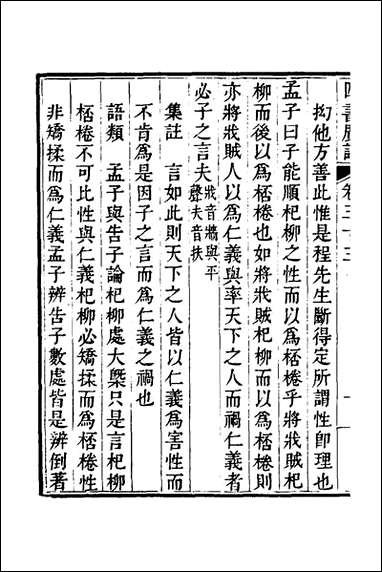 卷三十三
抝他方善此惟是程先生斷得定所謂性卽理也
孟子曰子能順杞柳之性而以爲桮棬乎將戕賊杞
柳而後以爲桮棬也如將戕賊杞柳而以爲桮棬則
亦將戕賊人以爲仁義與率天下之人而禍仁義者
必子之言夫戕音牆與平聲夫音扶
集註　言如此則天下之人皆以仁義爲害性而
不肯爲是因子之言而爲仁義之禍也
語類　孟子與告子論杞柳處大槩只是言杞柳
桮棬不可比性與仁義杞柳必矯揉而爲桮棬性
非矯揉而爲仁義孟子辨告子數處皆是辨倒著